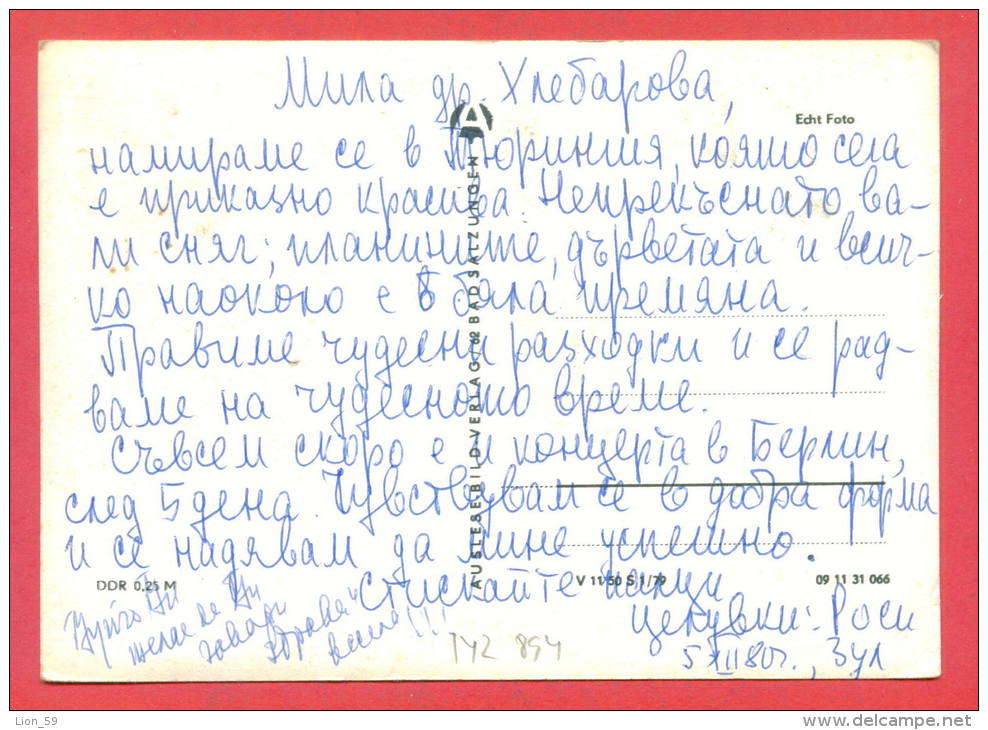 Мила др. Хлебарова,
Echt Foto
намираме се в Тюрингия, която сега
е приказно красива. Непрекъснато ва-
ли сняг; планините, дърветата и всич-
ко наоколо е в бяла премяна.
Правиме чудесни разходки и се рад-
ваме на чудесното време.
Съвсем скоро е и концерта в Берлин,
след 5 дена. Чувствувам се в добра форма
и се надявам да мине успешно.
AUSLESEBILD-VERLAG / 62 BAD SALZUNGEN
DDR 0,25 M
V 11 50 S 1/79
09 11 31 066
Стискайте палци
Целувки: Роси
5 XII 80г., Зул
желае да Ви
TYZ 894
Lion_59
www.delcampe.net